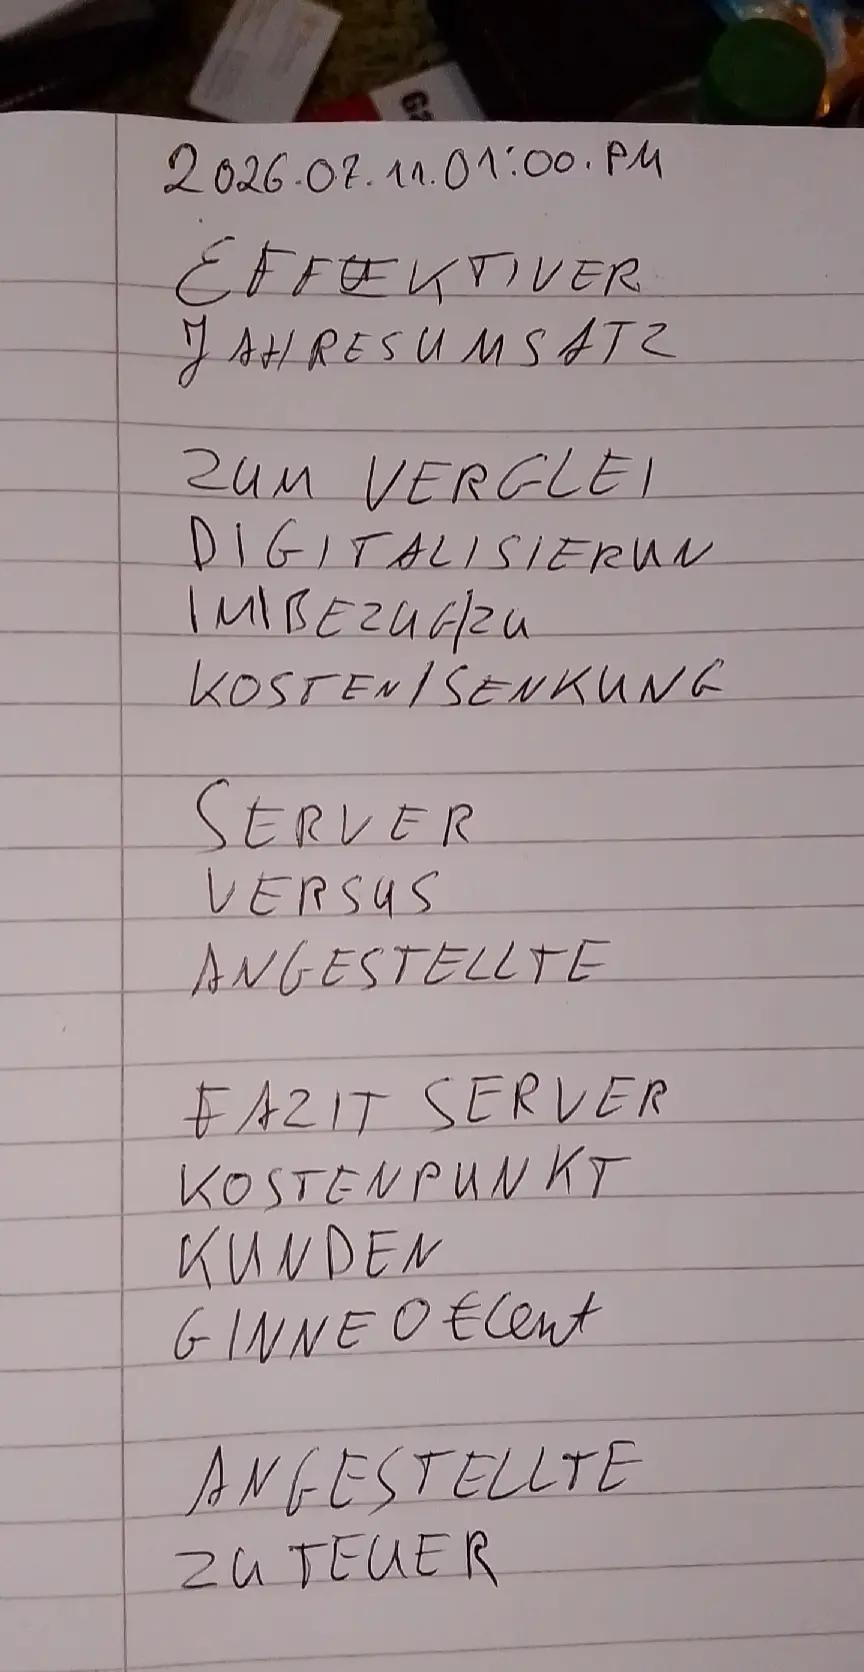 2026.07.11.01:00.PM
EFFEKTIVER
JAHRESUMSATZ
ZUM VERGLEI
DIGITALISIERUN
IM/BEZUG/ZU
KOSTEN/SENKUNG
SERVER
VERSUS
ANGESTELLTE
FAZIT SERVER
KOSTENPUNKT
KUNDEN
GINNE 0 €Cent
ANGESTELLTE
ZU TEUER